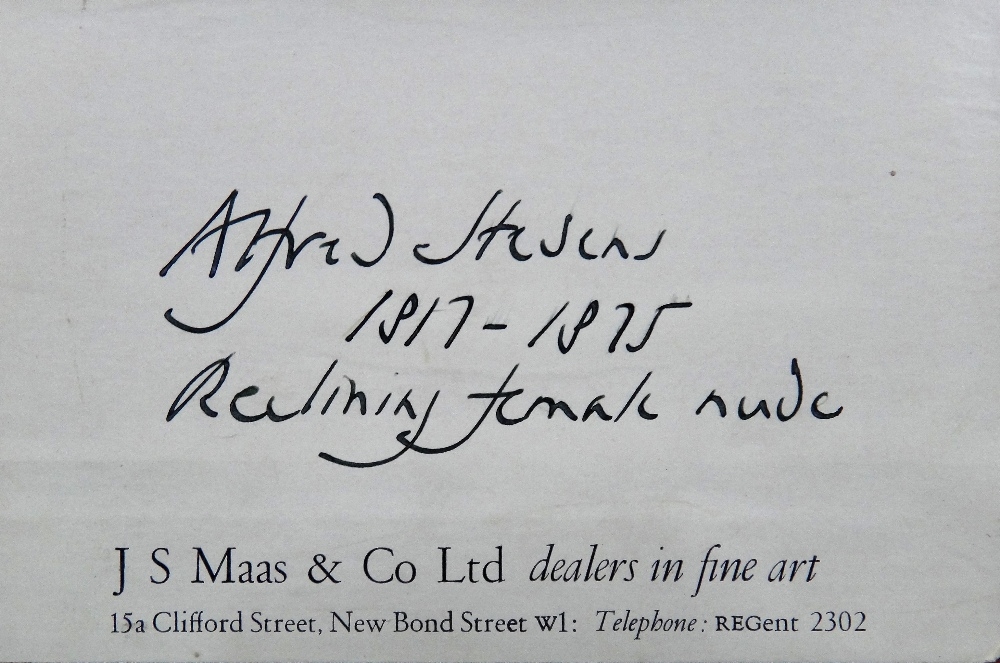 Alfred Stevens
1817-1875
Reclining female nude
J S Maas & Co Ltd dealers in fine art
15a Clifford Street, New Bond Street W1: Telephone: REGent 2302